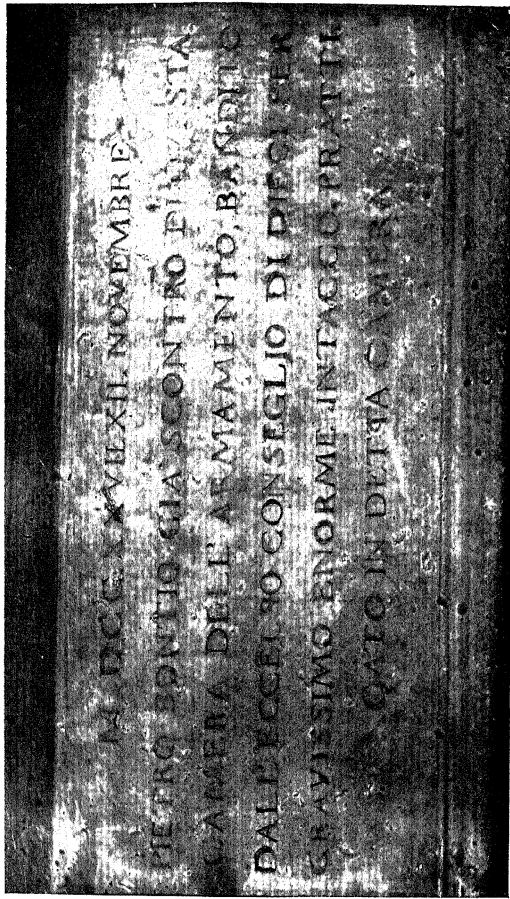 M. DCC. XXXVII. XII. NOVEMBRE.
PIETRO BONTIO GIA SCONTRO DI QVESTA
CAMERA DELL' ARMAMENTO, BANDITO
DALL' ECCELSO CONSEGLIO DI DIECI PER
GRAVISSIMO ENORME INTACCO, PRATTI
CATO IN DETTA CAMERA